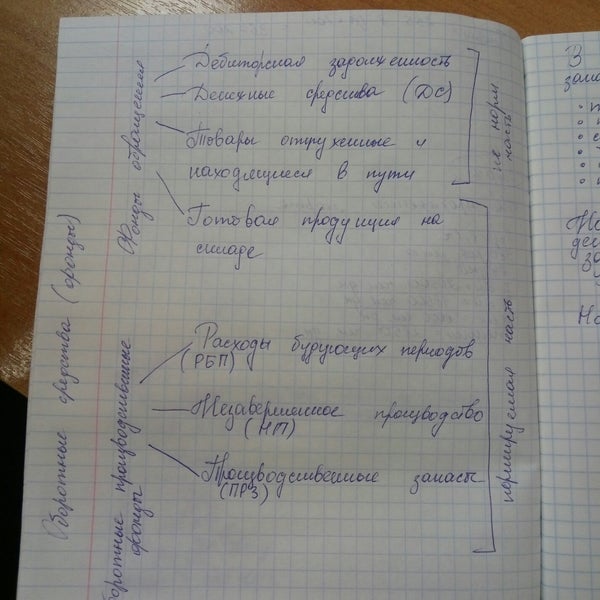 Оборотные средства (фонды)
Фонды обращения
Дебиторская задолженность
Денежные средства (ДС)
Товары отгруженные и
находящиеся в пути
Готовая продукция на
складе
не норм
часть
Оборотные производственные
фонды
Расходы будующих периодов
(РБП)
Незавершенное производство
(НП)
Производственные запасы
(ПРЗ)
нормируемая часть
В
запа